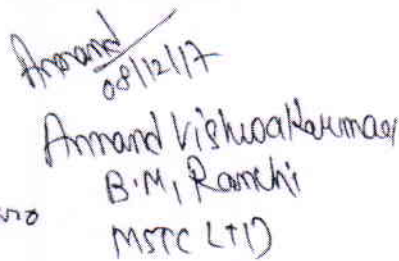 Anand
08/12/17
Anand Vishwakarma
B.M, Ranchi
MSTC LTD